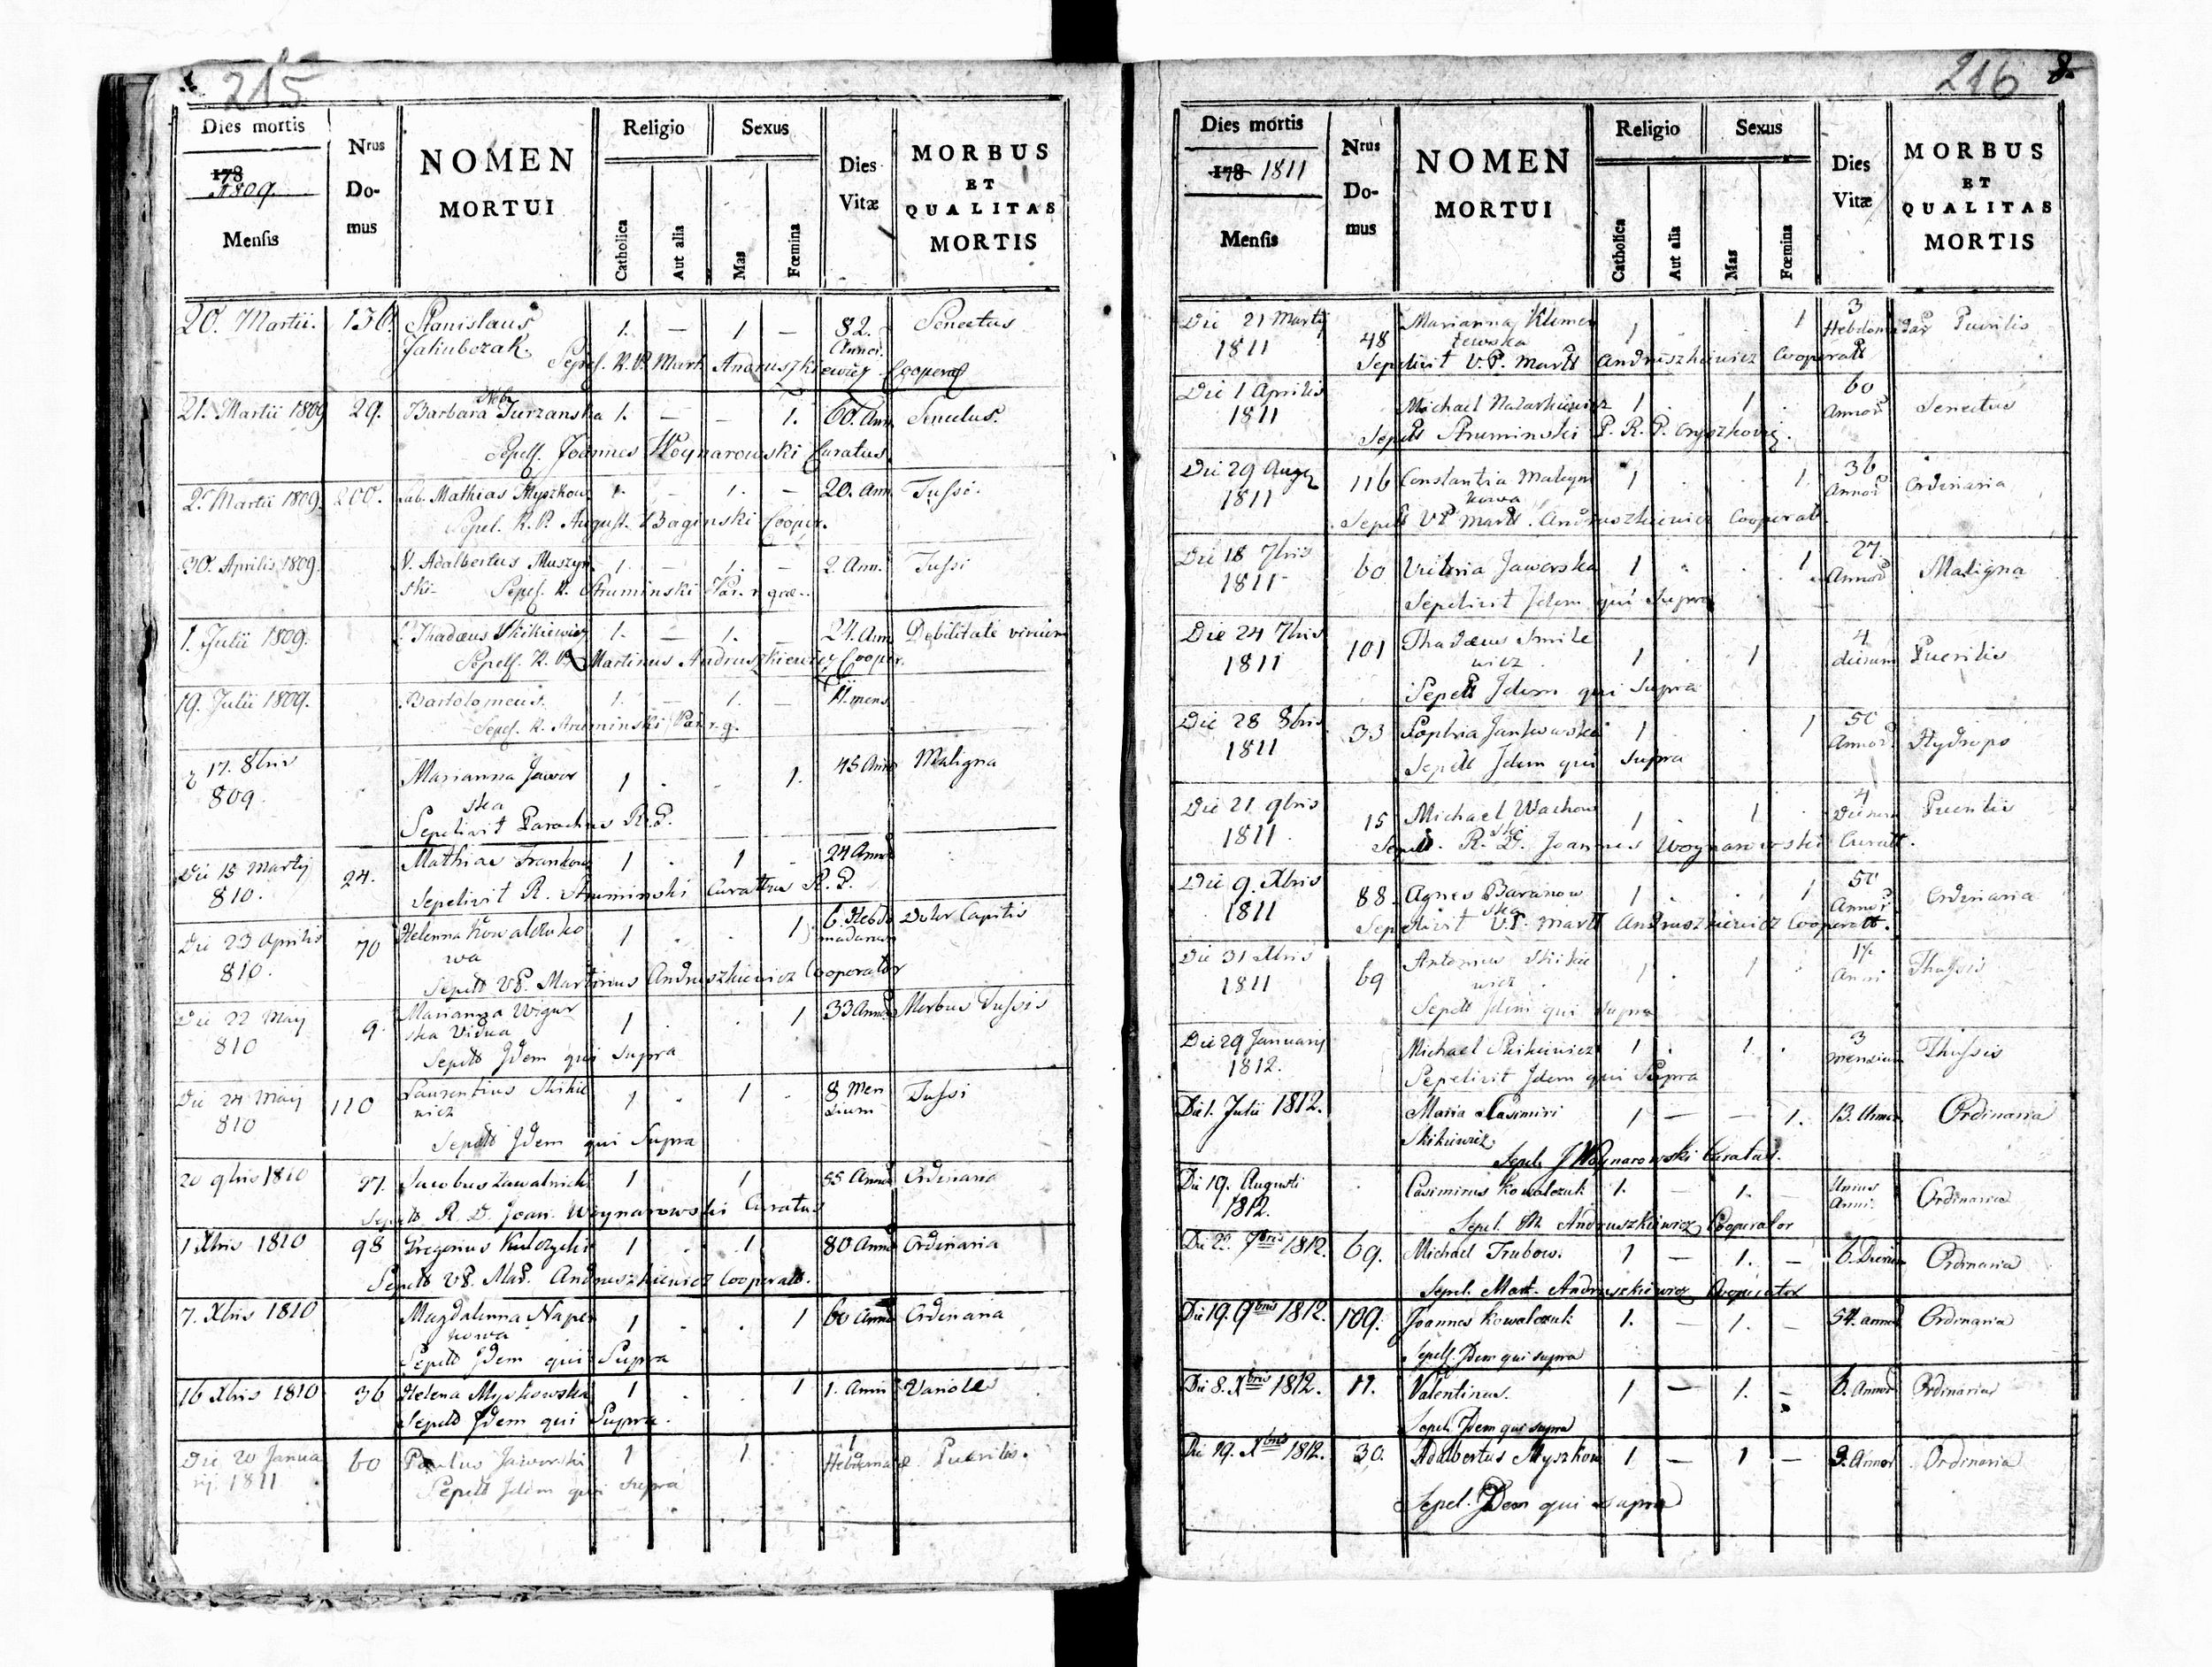 215
Dies mortis
178
1809.
Mensis
Nrus
Do-
mus
NOMEN
MORTUI
Religio
Catholica
Aut alia
Sexus
Mas
Fœmina
Dies
Vitæ
MORBUS
ET
QUALITAS
MORTIS
20. Martii. 136. Stanislaus 1. — 1 — 82. Senectus
Jakubczak. Annor.
Sepel. R. P. Mart. Andruszkiewicz Cooperat
21. Martii 1809 29. Barbara Turzanska 1. — — 1. 60. Ann. Senectus.
Sepelf. Joannes Woynarowski Curatus.
Martii 1809. 200. Lab. Mathias Myszkow 1. — 1. — 20. Ann. Tussi.
Sepel. R. P. August. Baginski Cooper.
30. Aprilis 1809. V. Adalbertus Muszyn 1. — 1. — 2. Ann. Tussi
ski- Sepel. R. Struminski Par. r. græ.
1. Julii 1809. Thadæus Skikiewicz 1. — 1. — 24. Ann. Debilitate virium
Sepelf. R. P. Martinus Andruszkiewicz Cooper.
19. Julii 1809. Bartolomeus. 1. — 1. — mens
Sepel. R. Struminski Par. r. g.
17. 8bris Marianna Jawor 1 . . 1. 45 Ann Maligna
809. ska
Sepelivit Parochus R. G.
Die 15 Martij 24. Mathias Frankow 1 . 1 . 24 Annor
810. Sepelivit R. Struminski Curattus R. G.
Die 23 Aprilis 70 Helenna Kowalczuko 1 . . 1 6. Hebdo Dolor Capitis
810. wa madarum
Sepelt VP. Martinus Andruszkiewicz Cooperator
Die 22 Maij 9. Marianna Wigur 1 . . 1 33 Annor Morbus Tussis
810 ska Vidua
Sepelt Idem qui Supra
Die 24 Maij 110 Laurentius Skikie 1 . 1 . 8 Men Tussi
810 wicz sium
Sepelt Idem qui Supra
20 9bris 1810 97. Jacobus Zawalnicki 1 1 55 Annor Ordinaria
Sepelt R. D. Joan. Woynarowski Curatus
1 Xbris 1810 98 Gregorius Kulczycki 1 . 1 80 Annor Ordinaria
Sepelt VP. Mar. Andruszkiewicz Cooperatt.
7. Xbris 1810 Magdalenna Naper 1 . . 1 60 Annor Ordinaria
kowa
Sepelt Idem qui Supra
16 Xbris 1810 36 Helena Myskowska 1 . . 1 1. Anni Varioles
Sepelt Idem qui Supra.
Die 20 Janua 60 Paulus Jaworski 1 1 1 Puerilis.
rij. 1811 Sepelt Idem qui supra Hebdomadæ
216 8.
Dies mortis
178 1811
Mensis
Nrus
Do-
mus
NOMEN
MORTUI
Religio
Catholica
Aut alia
Sexus
Mas
Fœmina
Dies
Vitæ
MORBUS
ET
QUALITAS
MORTIS
Die 21 Martij 48 Marianna Klimen 1 . 1 3 Puerilis
1811 towska Hebdomadar
Sepelivit V. P. Martt Andruszkiewicz Cooperatt
Die 1 Aprilis Michael Nazarkiewicz 1 . 1 . 60 Senectus
1811 Annor
Sepelt Struminski P. R. G.
Die 29 Aug 116 Constantia 1 . . 1. 36 Ordinaria
1811 kowa Annor
Sepelt VP Martt. Andruszkiewicz Cooperatt.
Die 18 7bris 60 Jaworska 1 . . 1 27. Maligna
1811 Annor
Sepelivit Idem qui Supra
Die 24 7bris 101 Thadæus Smile 1 . 1 4 Puerilis
1811 wicz dierum
Sepelt Idem qui Supra
Die 28 8bris 33 Sophia Jankowska 1 . . 1 50 Hydrops
1811 Annor.
Sepelt Idem qui Supra
Die 21 9bris 15 Michael Wachow 1 . 1 . 4 Puerilis
1811. ski Dierum
Sepelt. R. D. Joannes Woynarowski Curatt.
Die 9. Xbris 88. Agnes Baranow 1 . . 1 50 Ordinaria
1811 ska Annor
Sepelivit V.P. Martt Andruszkiewicz Cooperatt.
Die 31 Xbris 69 Antonius Skikie 1 . 1 . 1½ Thussis
1811 wicz Anni
Sepelt Idem qui Supra
Die 29 Januarij Michael Skikiewicz 1 . 1 . 3 Thussis
1812. mensium
Sepelivit Idem qui Supra
Die 1. Julii 1812. Maria Casimiri 1 — — 1. 13. Ordinaria
Skikiewicz.
Sepel. J Woynarowski Curatus.
Die 19. Augusti Casimirus Kowalczuk 1. — 1. — Unius Ordinaria
1812. Anni.
Sepel. Andruszkiewicz Cooperator
7bris 1812. 69. Michael Trubow. 1 — 1. — 6. Dierum Ordinaria
Sepel. Mart. Andruszkiewicz Cooperator
Die 19. 9bris 1812. 109. Joannes Kowalczuk 1. — 1. — 54. annor Ordinaria
Sepelf. Idem qui supra
Die 8. Xbris 1812. 11. Valentinus. 1 — 1. — 6. Annor Ordinaria
Sepel. Idem qui supra
Die 19. Xbris 1812. 30. Adalbertus Myszkow 1 — 1 — 3. Annor Ordinaria
Sepel. Idem qui supra